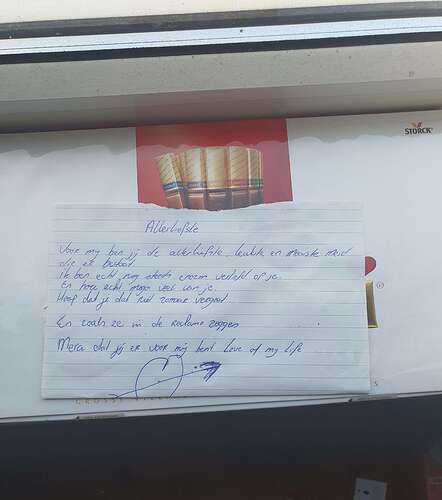 STORCK
Allerliefste
Voor mij ben jij de allerliefste, leukste en mooiste meid
die er bestaat
Ik ben echt nog steeds enorm verliefd op je.
En hou echt mega veel van je.
Hoop dat je dat niet zomaar vergeet
En zoals ze in de reclame zeggen
Merci dat jij er voor mij bent Love of my life